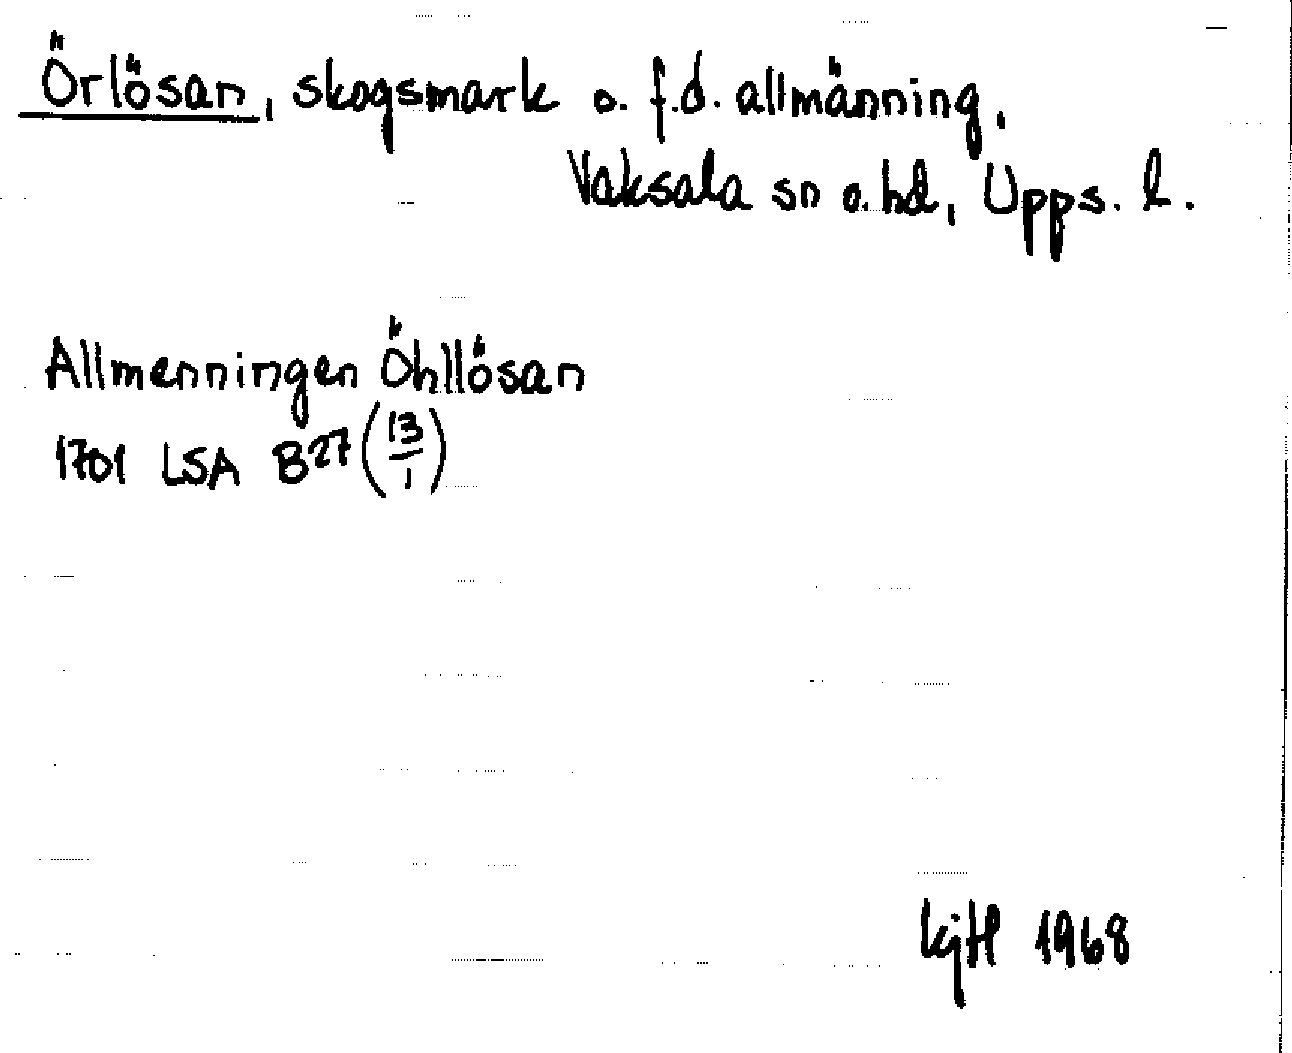 Örlösan, skogsmark o. f.d. allmänning.
Vaksala sn o. hd, Upps. l.
Allmenningen Öhllösan
1701 LSA B27 (13/1)
KjH 1968